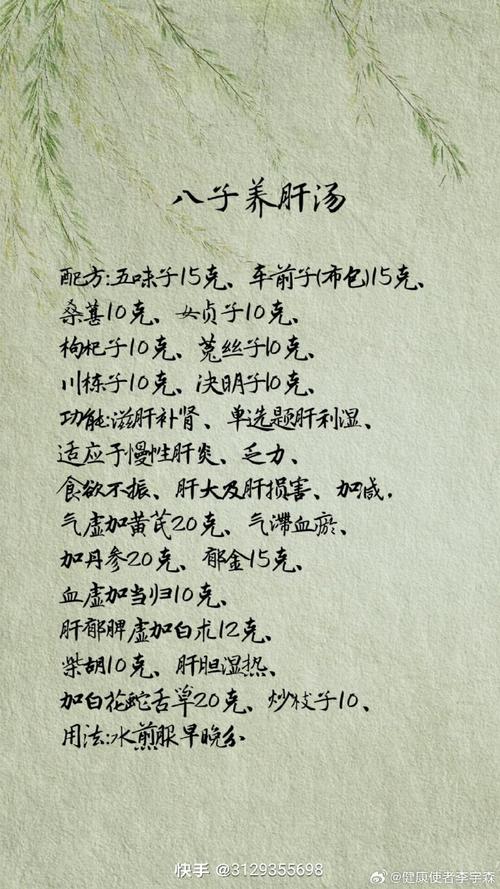 八子养肝汤
配方:五味子15克、车前子(布包)15克、
桑葚10克、女贞子10克、
枸杞子10克、菟丝子10克、
川栋子10克、决明子10克、
功能:滋肝补肾、单选题肝利湿、
适应于慢性肝炎、乏力、
食欲不振、肝大及肝损害、加减.
气虚加黄芪20克、气滞血瘀、
加丹参20克、郁金15克、
血虚加当归10克、
肝郁脾虚加白术12克、
柴胡10克、肝胆湿热、
加白花蛇舌草20克、炒枝子10、
用法:水煎服早晚分
快手 @3129355698
@健康使者李宇森